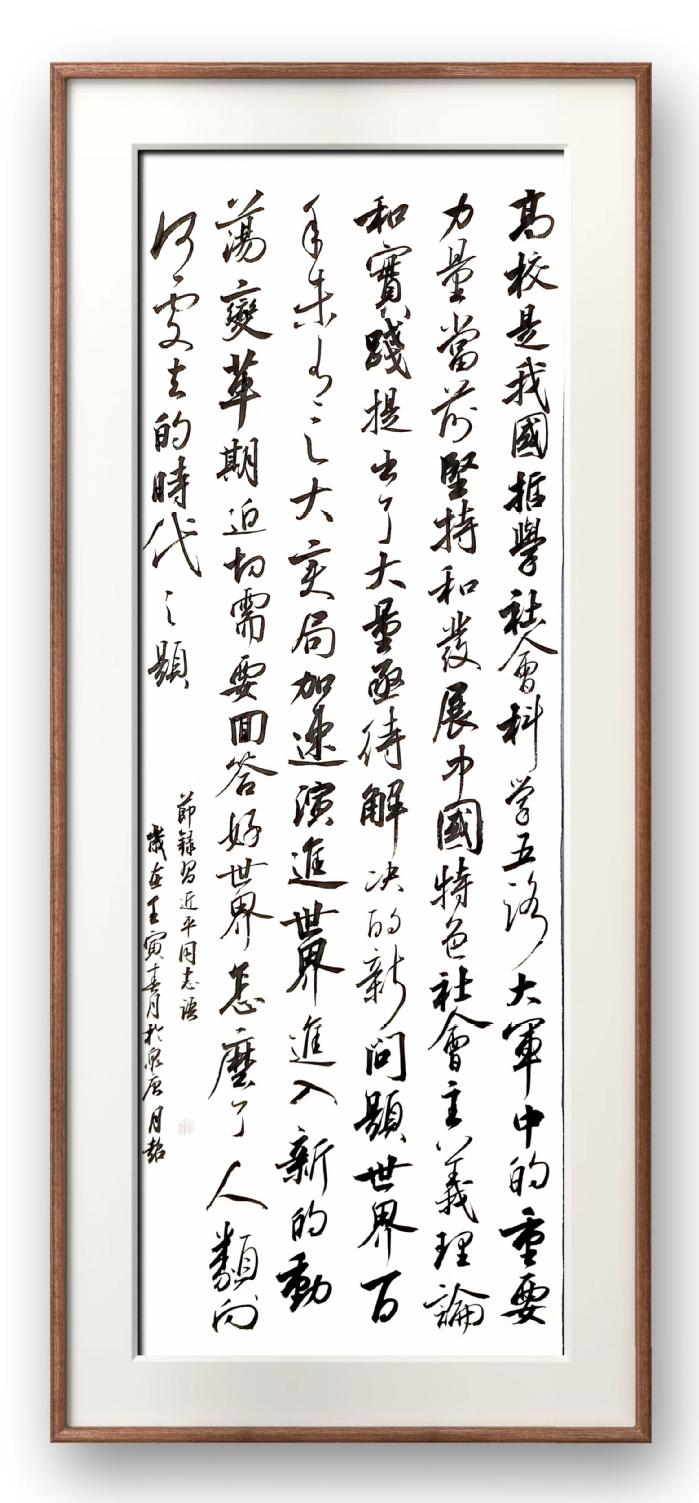 高校是我國哲學社會科学五路大軍中的重要
力量當前堅持和發展中國特色社會主義理論
和實踐提出了大量亟待解决的新問題世界百
年未有之大变局加速演進世界進入新的動
蕩變革期迫切需要回答好世界怎麼了人類向
何處去的時代之題
節録習近平同志語
歲在壬寅春月於泉唐月